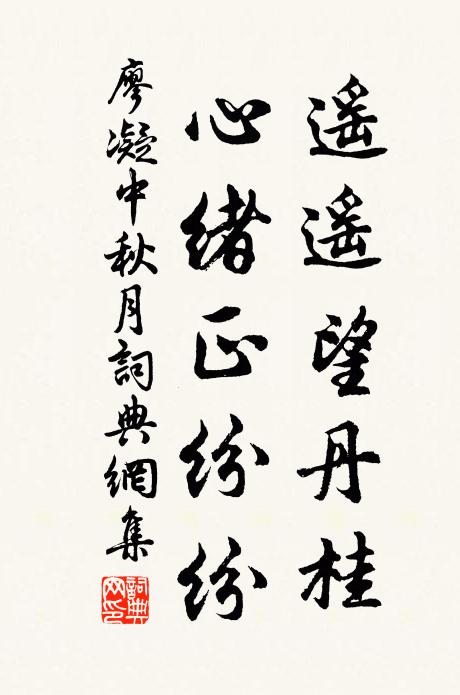 遥遥望丹桂
心緒正紛紛
廖凝中秋月詞典網集
詞典网印